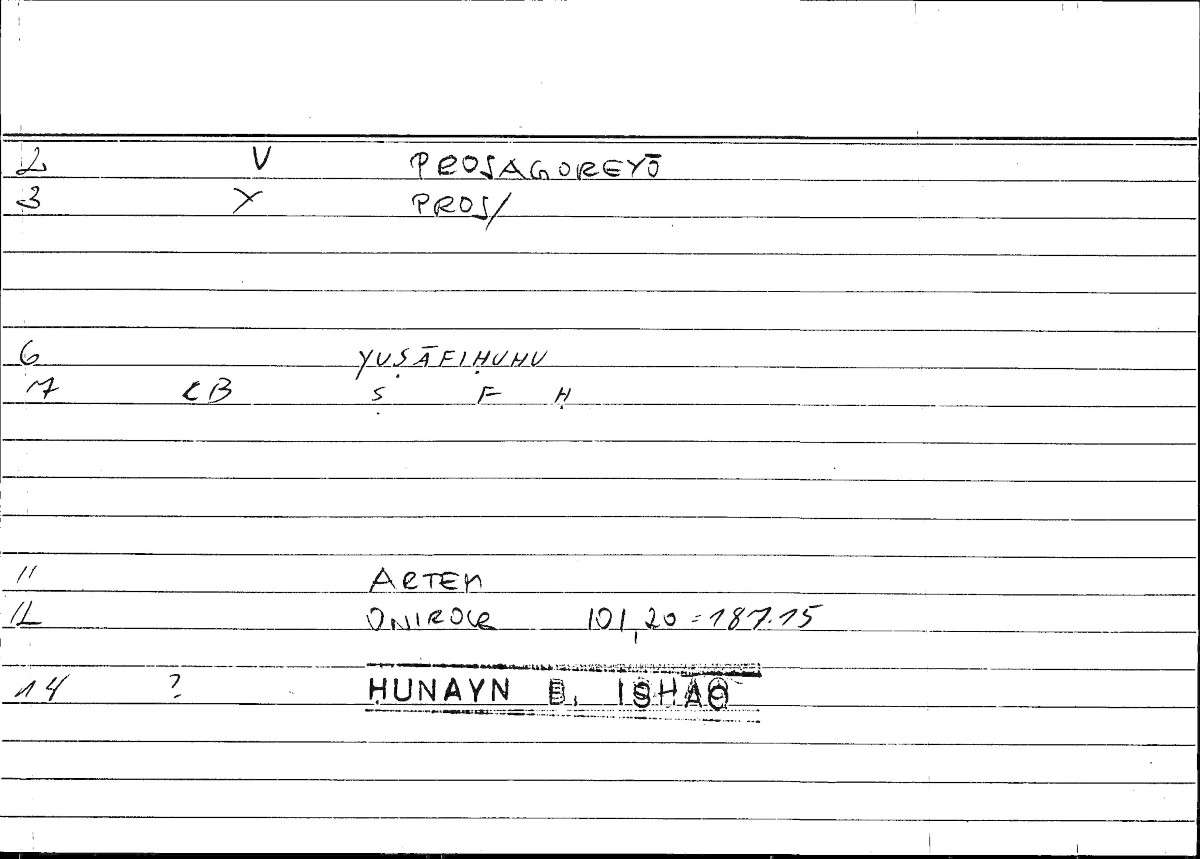 2 V PROSAGOREYŌ
3 Y PROS/
6 YUṢĀFIḤUHU
7 CB Ṣ F Ḥ
11 ARTEM
12 ONIROCR 101,20 = 187.15
14 ? ḤUNAYN B. ISḤĀQ